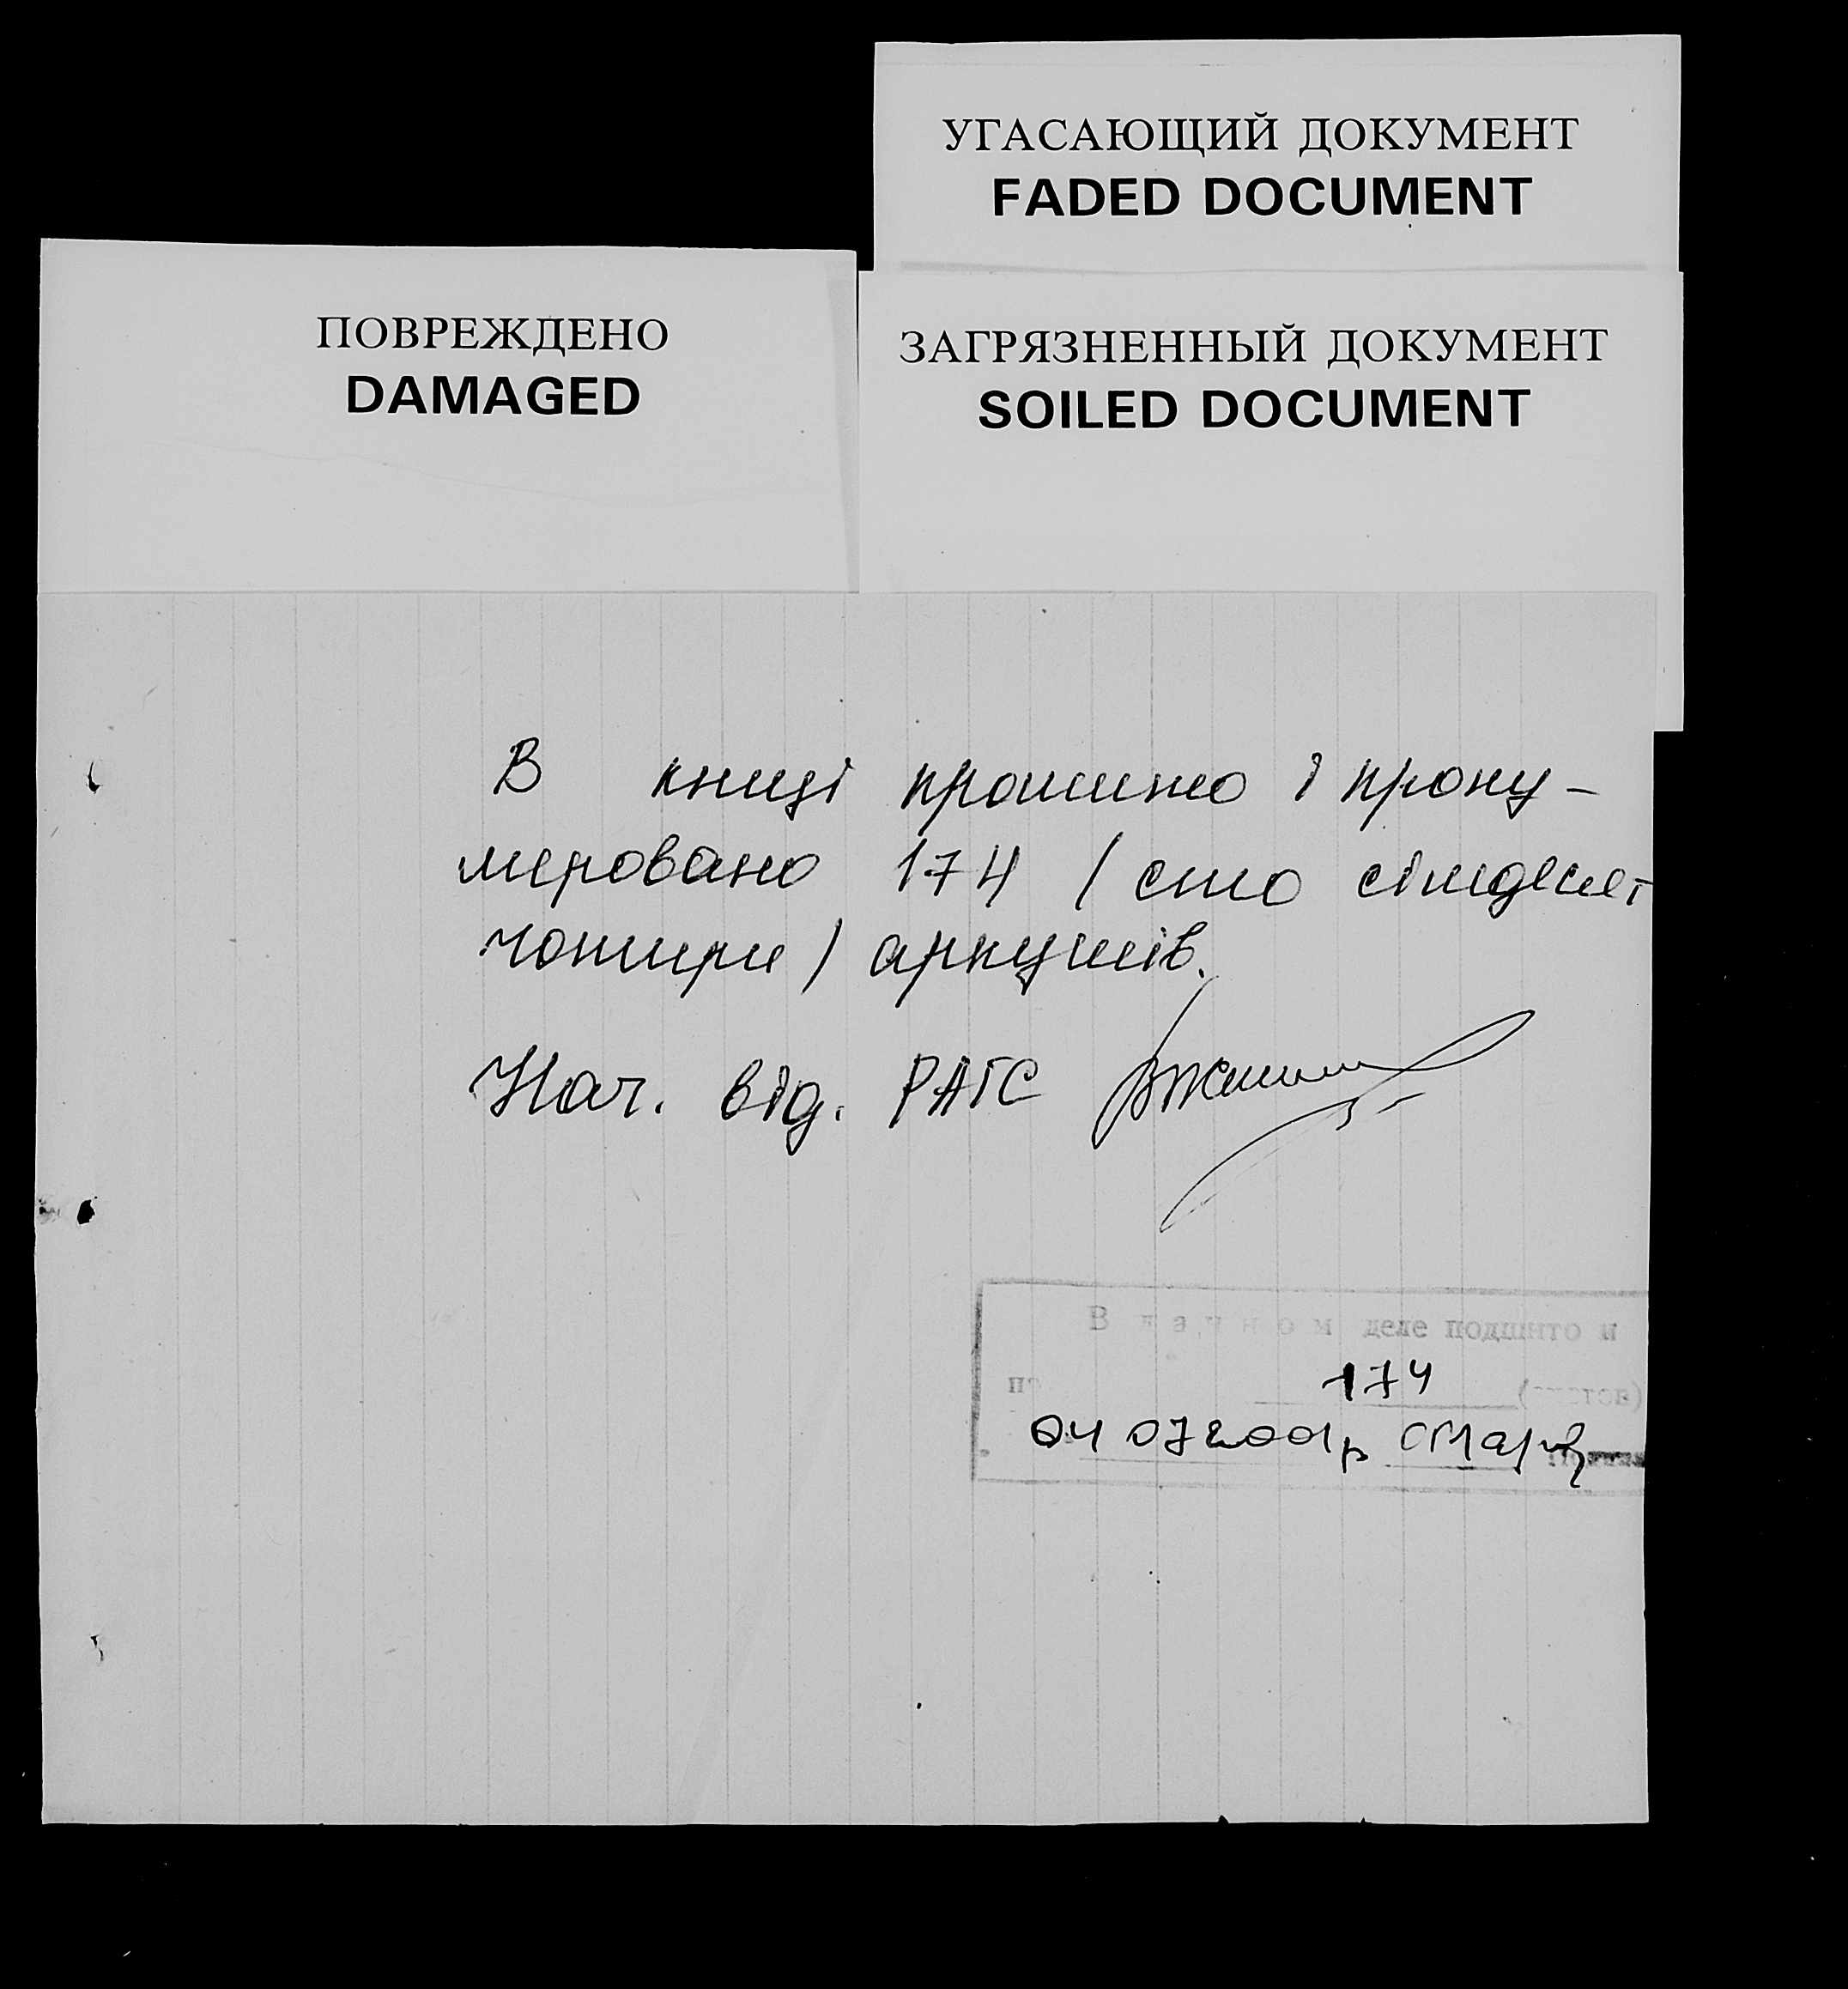 УГАСАЮЩИЙ ДОКУМЕНТ
FADED DOCUMENT
ПОВРЕЖДЕНО
DAMAGED
ЗАГРЯЗНЕННЫЙ ДОКУМЕНТ
SOILED DOCUMENT
В книзі прошито і прону-
меровано 174 / сто сімдесят
чотири / аркушів.
Нач. від. РАГС
В данном деле подшито и
174
04 07 2001р